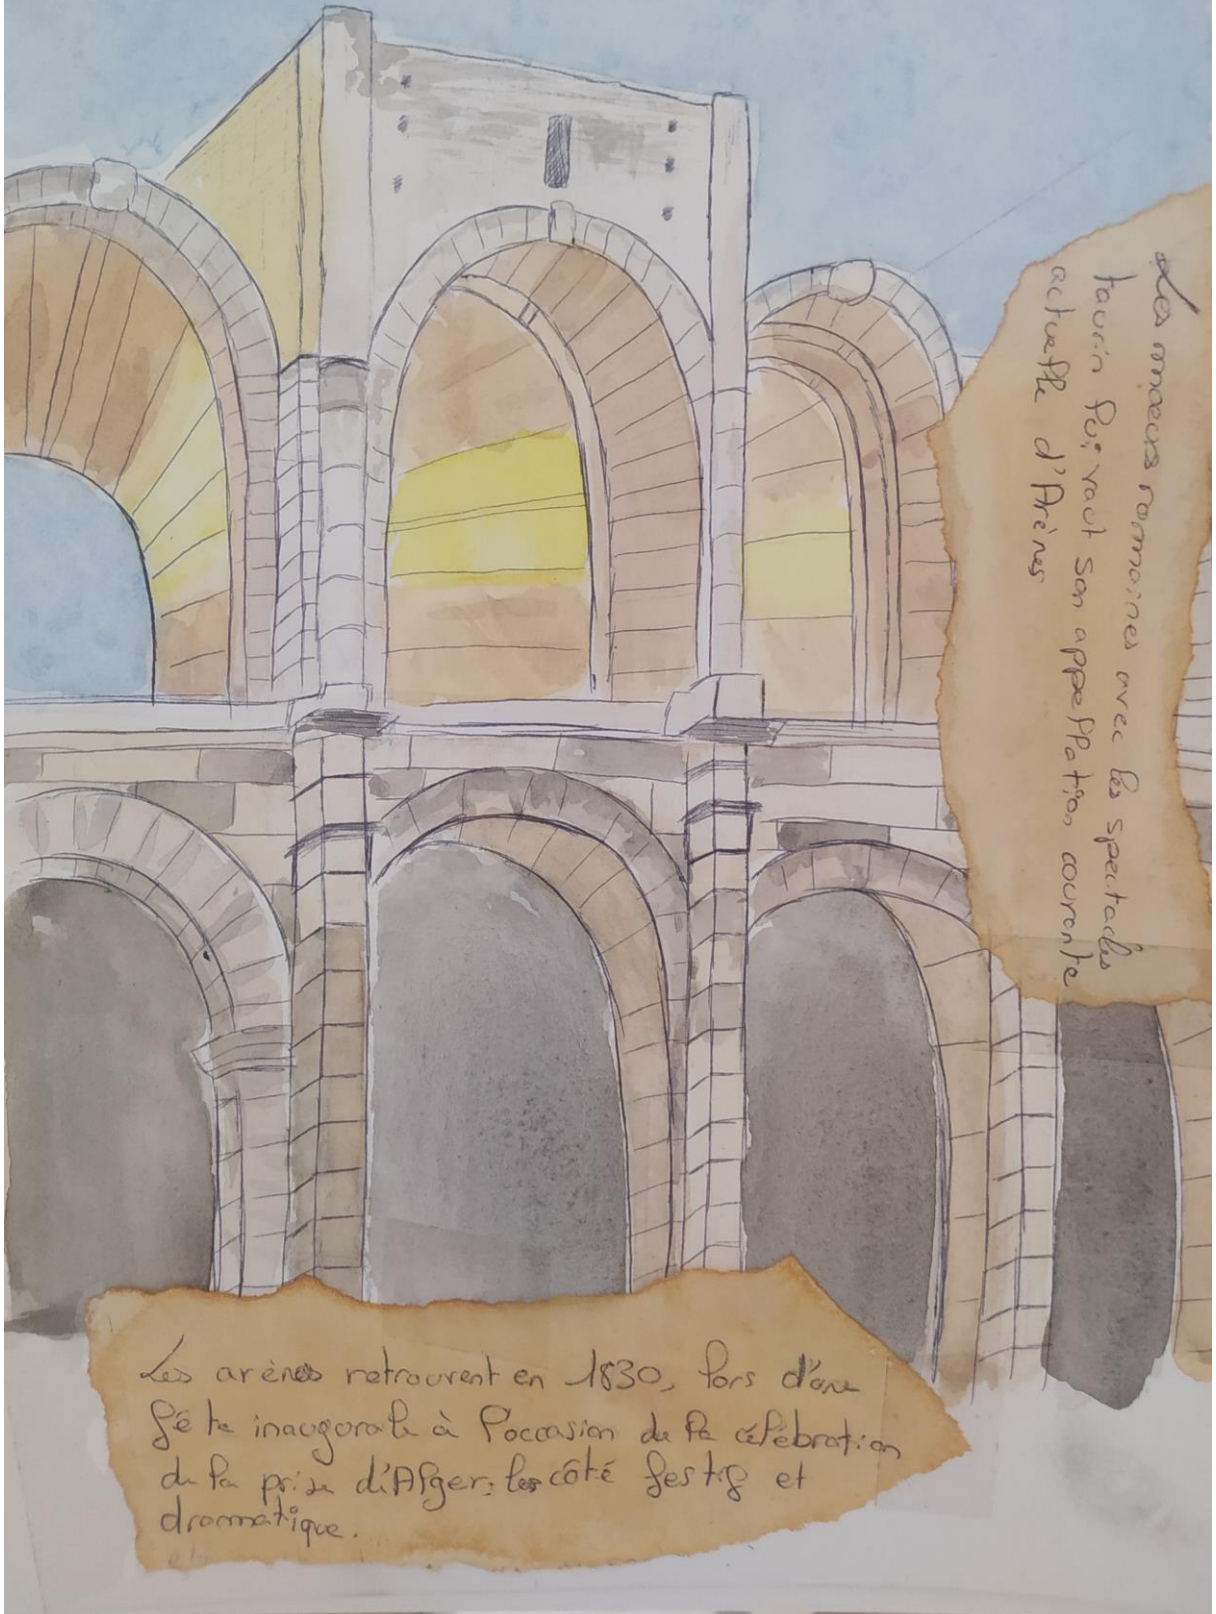 Les moeurs romaines avec les spectacles
taurin lui vaut son appellation courante
actuelle d'Arènes
Les arènes retrouvent en 1830, lors d'une
fête inaugurale à l'occasion de la célébration
de la prise d'Alger: les côté festif et
drammatique.